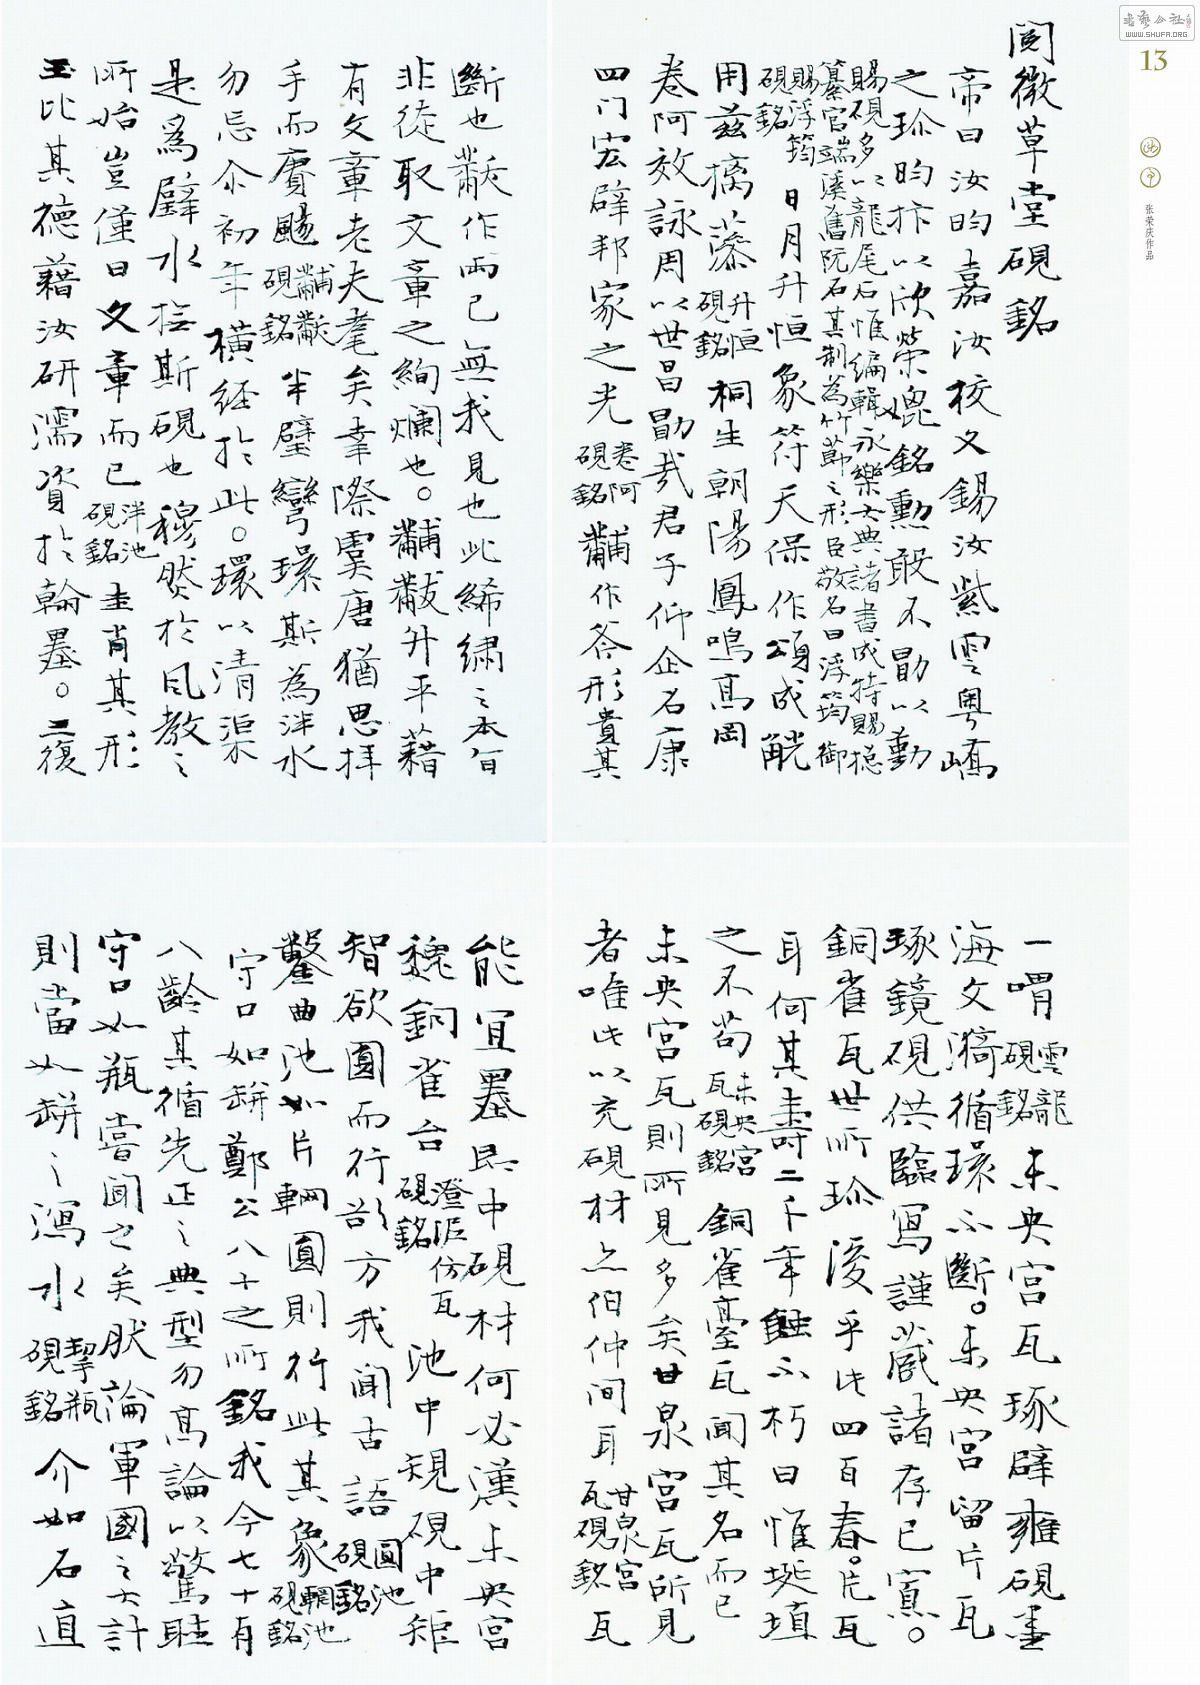 閱微草堂硯銘
帝曰汝昀嘉汝校文錫汝紫雲粵嶠
之珍昀拜以欣榮媿銘勳敢不勖以勤
賜硯多以龍尾石惟編輯永樂大典諸書成特賜總
纂官端溪舊阬石其制為竹節之形臣敬名曰浮筠御
賜浮筠
硯銘
日月升恒象符天保作頌成觥
用茲摛藻
升恒
硯銘
桐生朝陽鳳鳴高岡
卷阿效詠周以世昌勖哉君子仰企召康
四門宏辟邦家之光
卷阿
硯銘
黼作斧形貴其
斷也黻作兩已無我見也此絺繡之本旨
非徒取文章之絢爛也。黼黻升平藉
有文章老夫耄矣幸際虞唐猶思拜
手而賡颺
黼黻
硯銘
半璧彎環斯為泮水
勿忘尒初年橫經於此。環以清渠
是為璧水摭斯硯也穆然於風教之
所始豈僅曰文章而已
泮池
硯銘
圭肖其形
玉比其德藉汝研濡資於翰墨。三復
一喟
雲龍
硯銘
未央宮瓦琢辟雍硯墨
海文漪循環不斷。未央宮留片瓦
琢鏡硯供臨寫謹藏諸存已寡。
銅雀瓦世所珍後乎此四百春。片瓦
耳何其壽二千年蝕不朽曰惟埏埴
之不苟
未央宮
瓦硯銘
銅雀臺瓦聞其名而已
未央宮瓦則所見多矣甘泉宮瓦所見
者唯此以充硯材亦伯仲間耳
甘泉宮
瓦硯銘
瓦
能宜墨即中硯材何必漢未央宮
魏銅雀台
澄泥仿瓦
硯銘
池中規硯中矩
智欲圓而行欲方我聞古語
圓池
硯銘
鑿曲池如片輞圓則行此其象
輞池
硯銘
守口如缾鄭公八十之所銘我今七十有
八齡其循先正之典型勿高論以驚聽
守口如瓶嘗聞之矣然論軍國之大計
則當如缾之瀉水
挈瓶
硯銘
介如石直
13
张荣庆作品
WWW.SHUFA.ORG